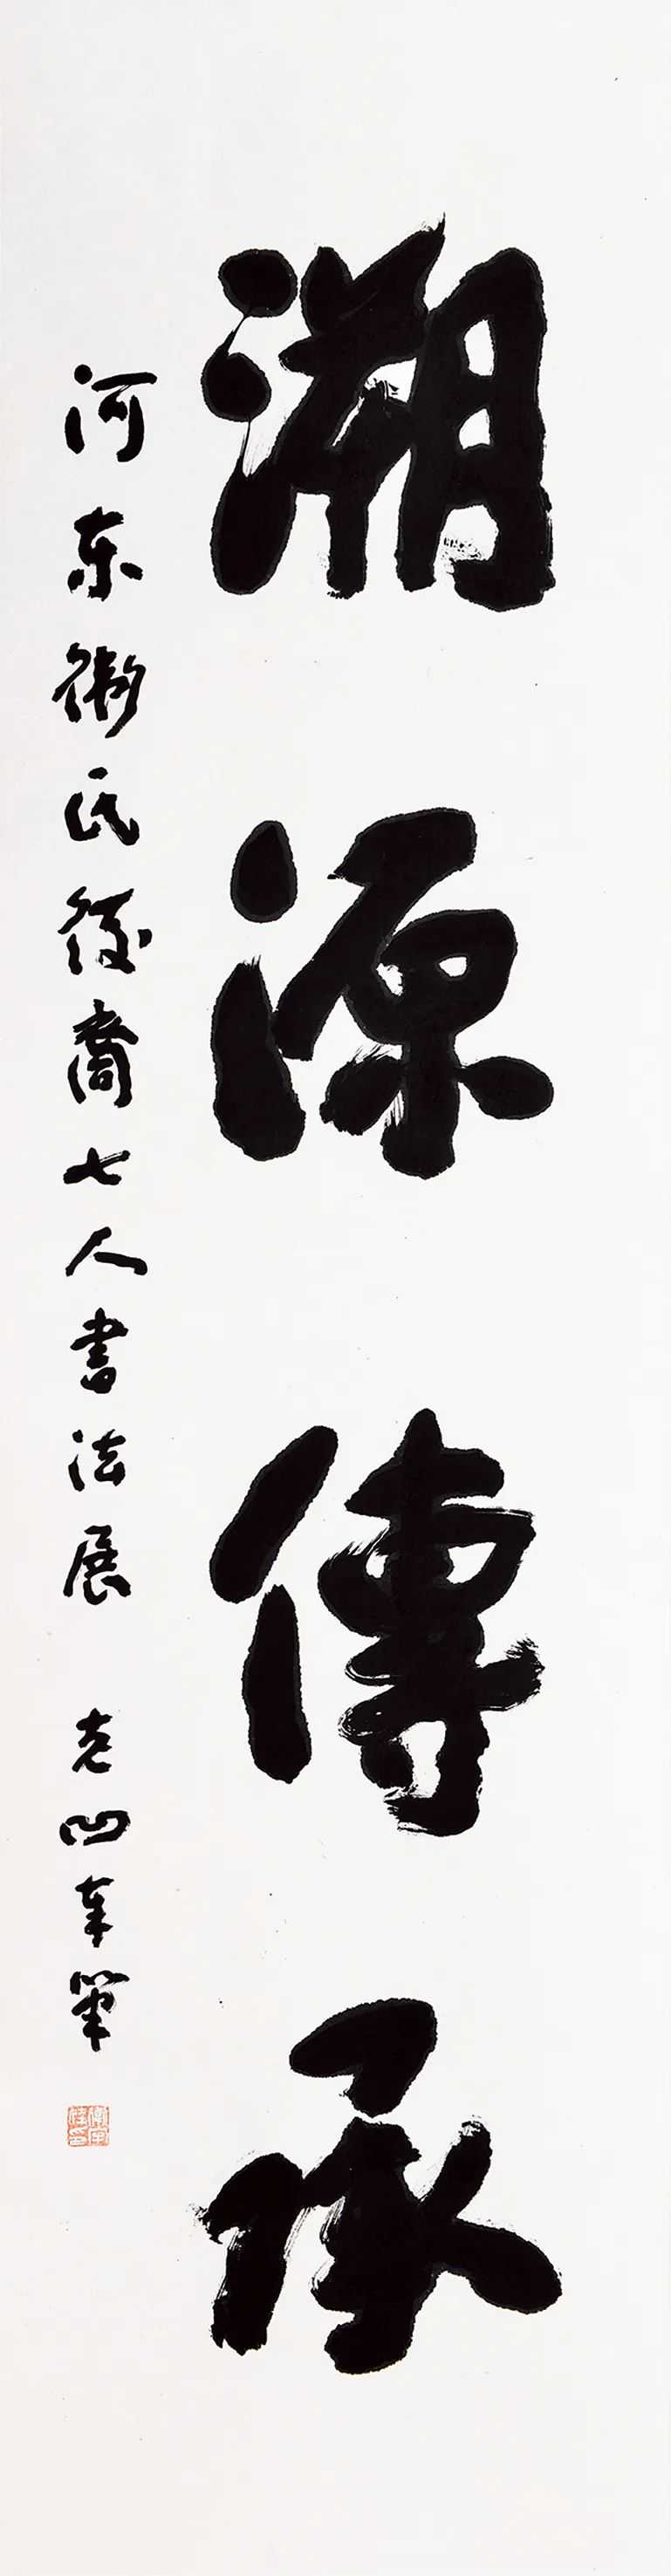 溯源傳承
河东衛氏後裔七人書法展 老凹奉筆